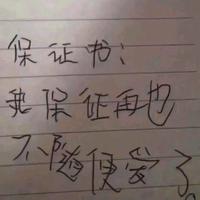 保证书:
我保证再也
不随便受了。